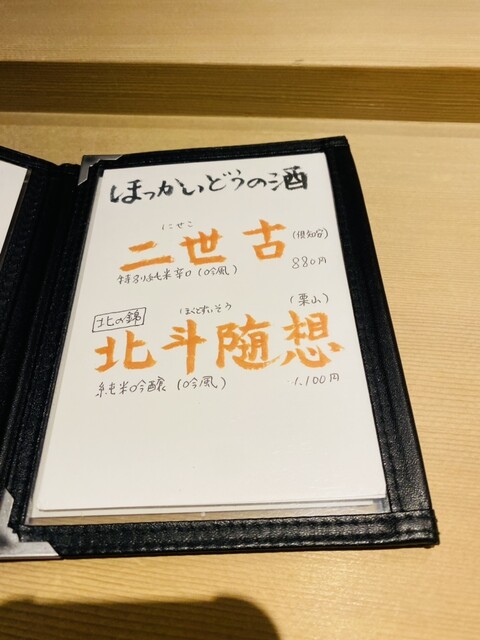 ほっかいどうの酒
にせこ
二世古 (倶知安)
特別純米辛口(吟風) 880円
(栗山)
北の錦 ほくとずいそう
北斗随想
純米吟醸(吟風) 1,100円